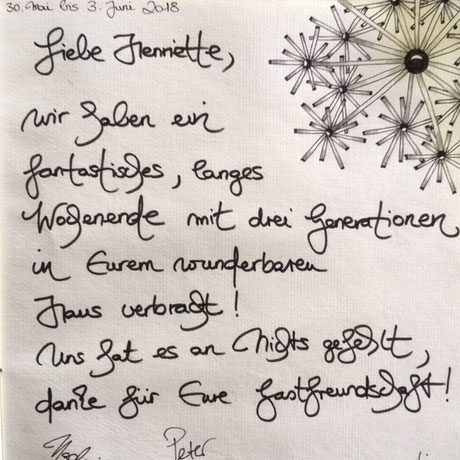 30. Mai bis 3. Juni 2018
Liebe Henriette,
wir haben ein
fantastisches, langes
Wochenende mit drei Generationen
in Eurem wunderbaren
Haus verbracht!
Uns hat es an Nichts gefehlt,
danke für Eure Gastfreundschaft!
Peter